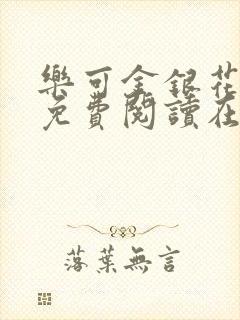 樂可金銀花
免費閱讀在
落葉無言